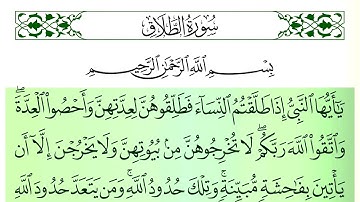 سُورَةُ الطَّلَاقِ
بِسْمِ اللَّهِ الرَّحْمَٰنِ الرَّحِيمِ
يَٰٓأَيُّهَا النَّبِيُّ إِذَا طَلَّقْتُمُ النِّسَآءَ فَطَلِّقُوهُنَّ لِعِدَّتِهِنَّ وَأَحْصُوا۟ الْعِدَّةَ ۖ
وَاتَّقُوا۟ اللَّهَ رَبَّكُمْ ۖ لَا تُخْرِجُوهُنَّ مِنۢ بُيُوتِهِنَّ وَلَا يَخْرُجْنَ إِلَّآ أَن
يَأْتِينَ بِفَٰحِشَةٍ مُّبَيِّنَةٍ ۚ وَتِلْكَ حُدُودُ اللَّهِ ۚ وَمَن يَتَعَدَّ حُدُودَ اللَّهِ